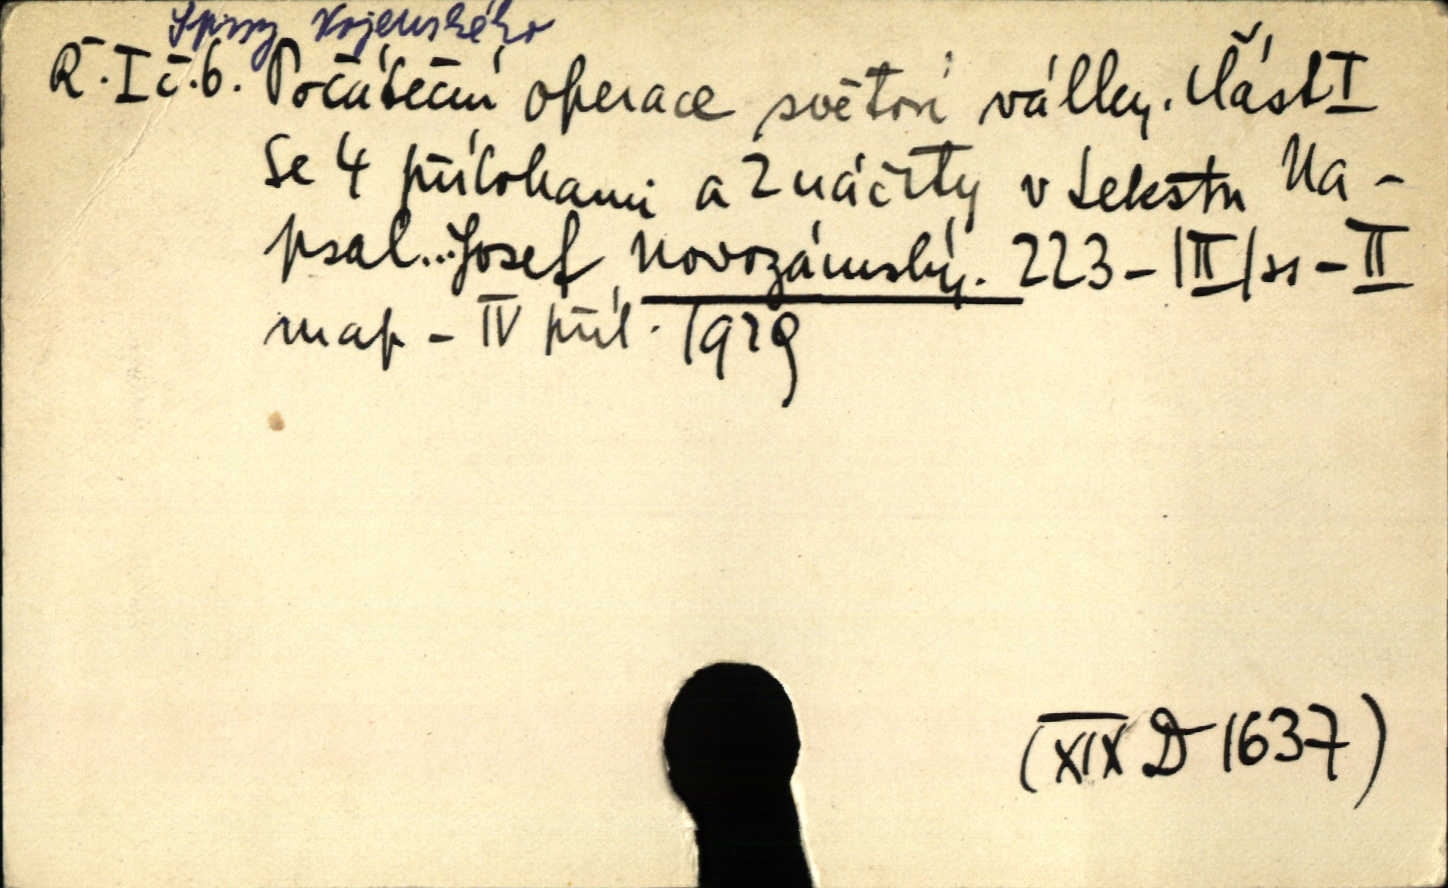 Spisy Vojenského
Ř. I č. 6. Počáteční operace světové války. Část I
Se 4 přílohami a 2 náčrty v tekstu Na-
psal... Josef Novozámský. 223 - |II| ss - II
map - IV příl. 1929
(XIX D 1637)